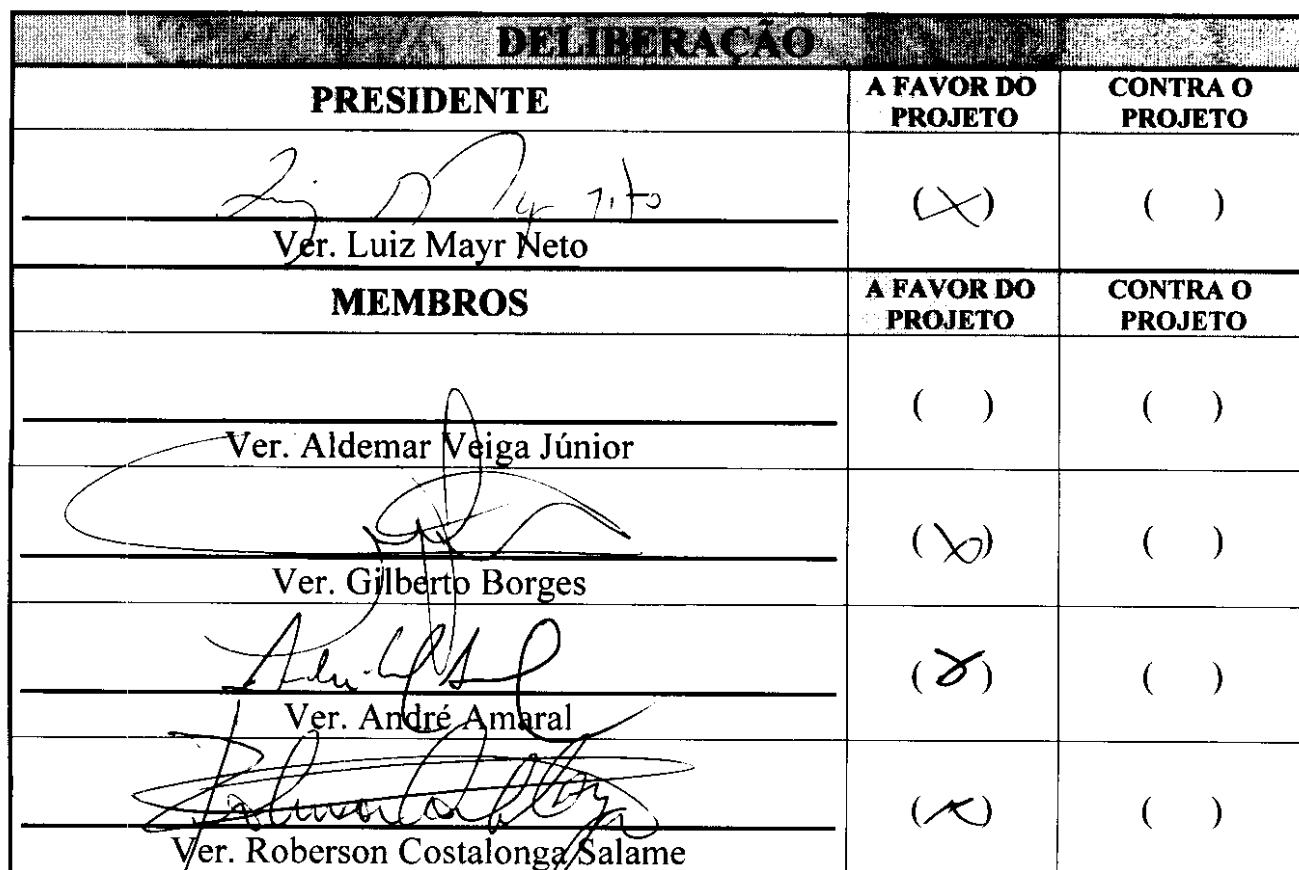 DELIBERAÇÃO
PRESIDENTE
A FAVOR DO
PROJETO
CONTRA O
PROJETO
(X)
( )
Ver. Luiz Mayr Neto
MEMBROS
A FAVOR DO
PROJETO
CONTRA O
PROJETO
( )
( )
Ver. Aldemar Veiga Júnior
(X)
( )
Ver. Gilberto Borges
(X)
( )
Ver. André Amaral
(X)
( )
Ver. Roberson Costalonga Salame